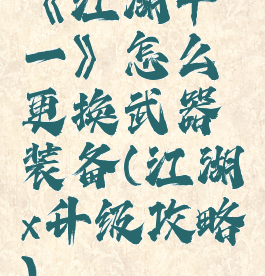 《江湖十
一》怎么
更换武器
装备(江湖
x升级攻略
)